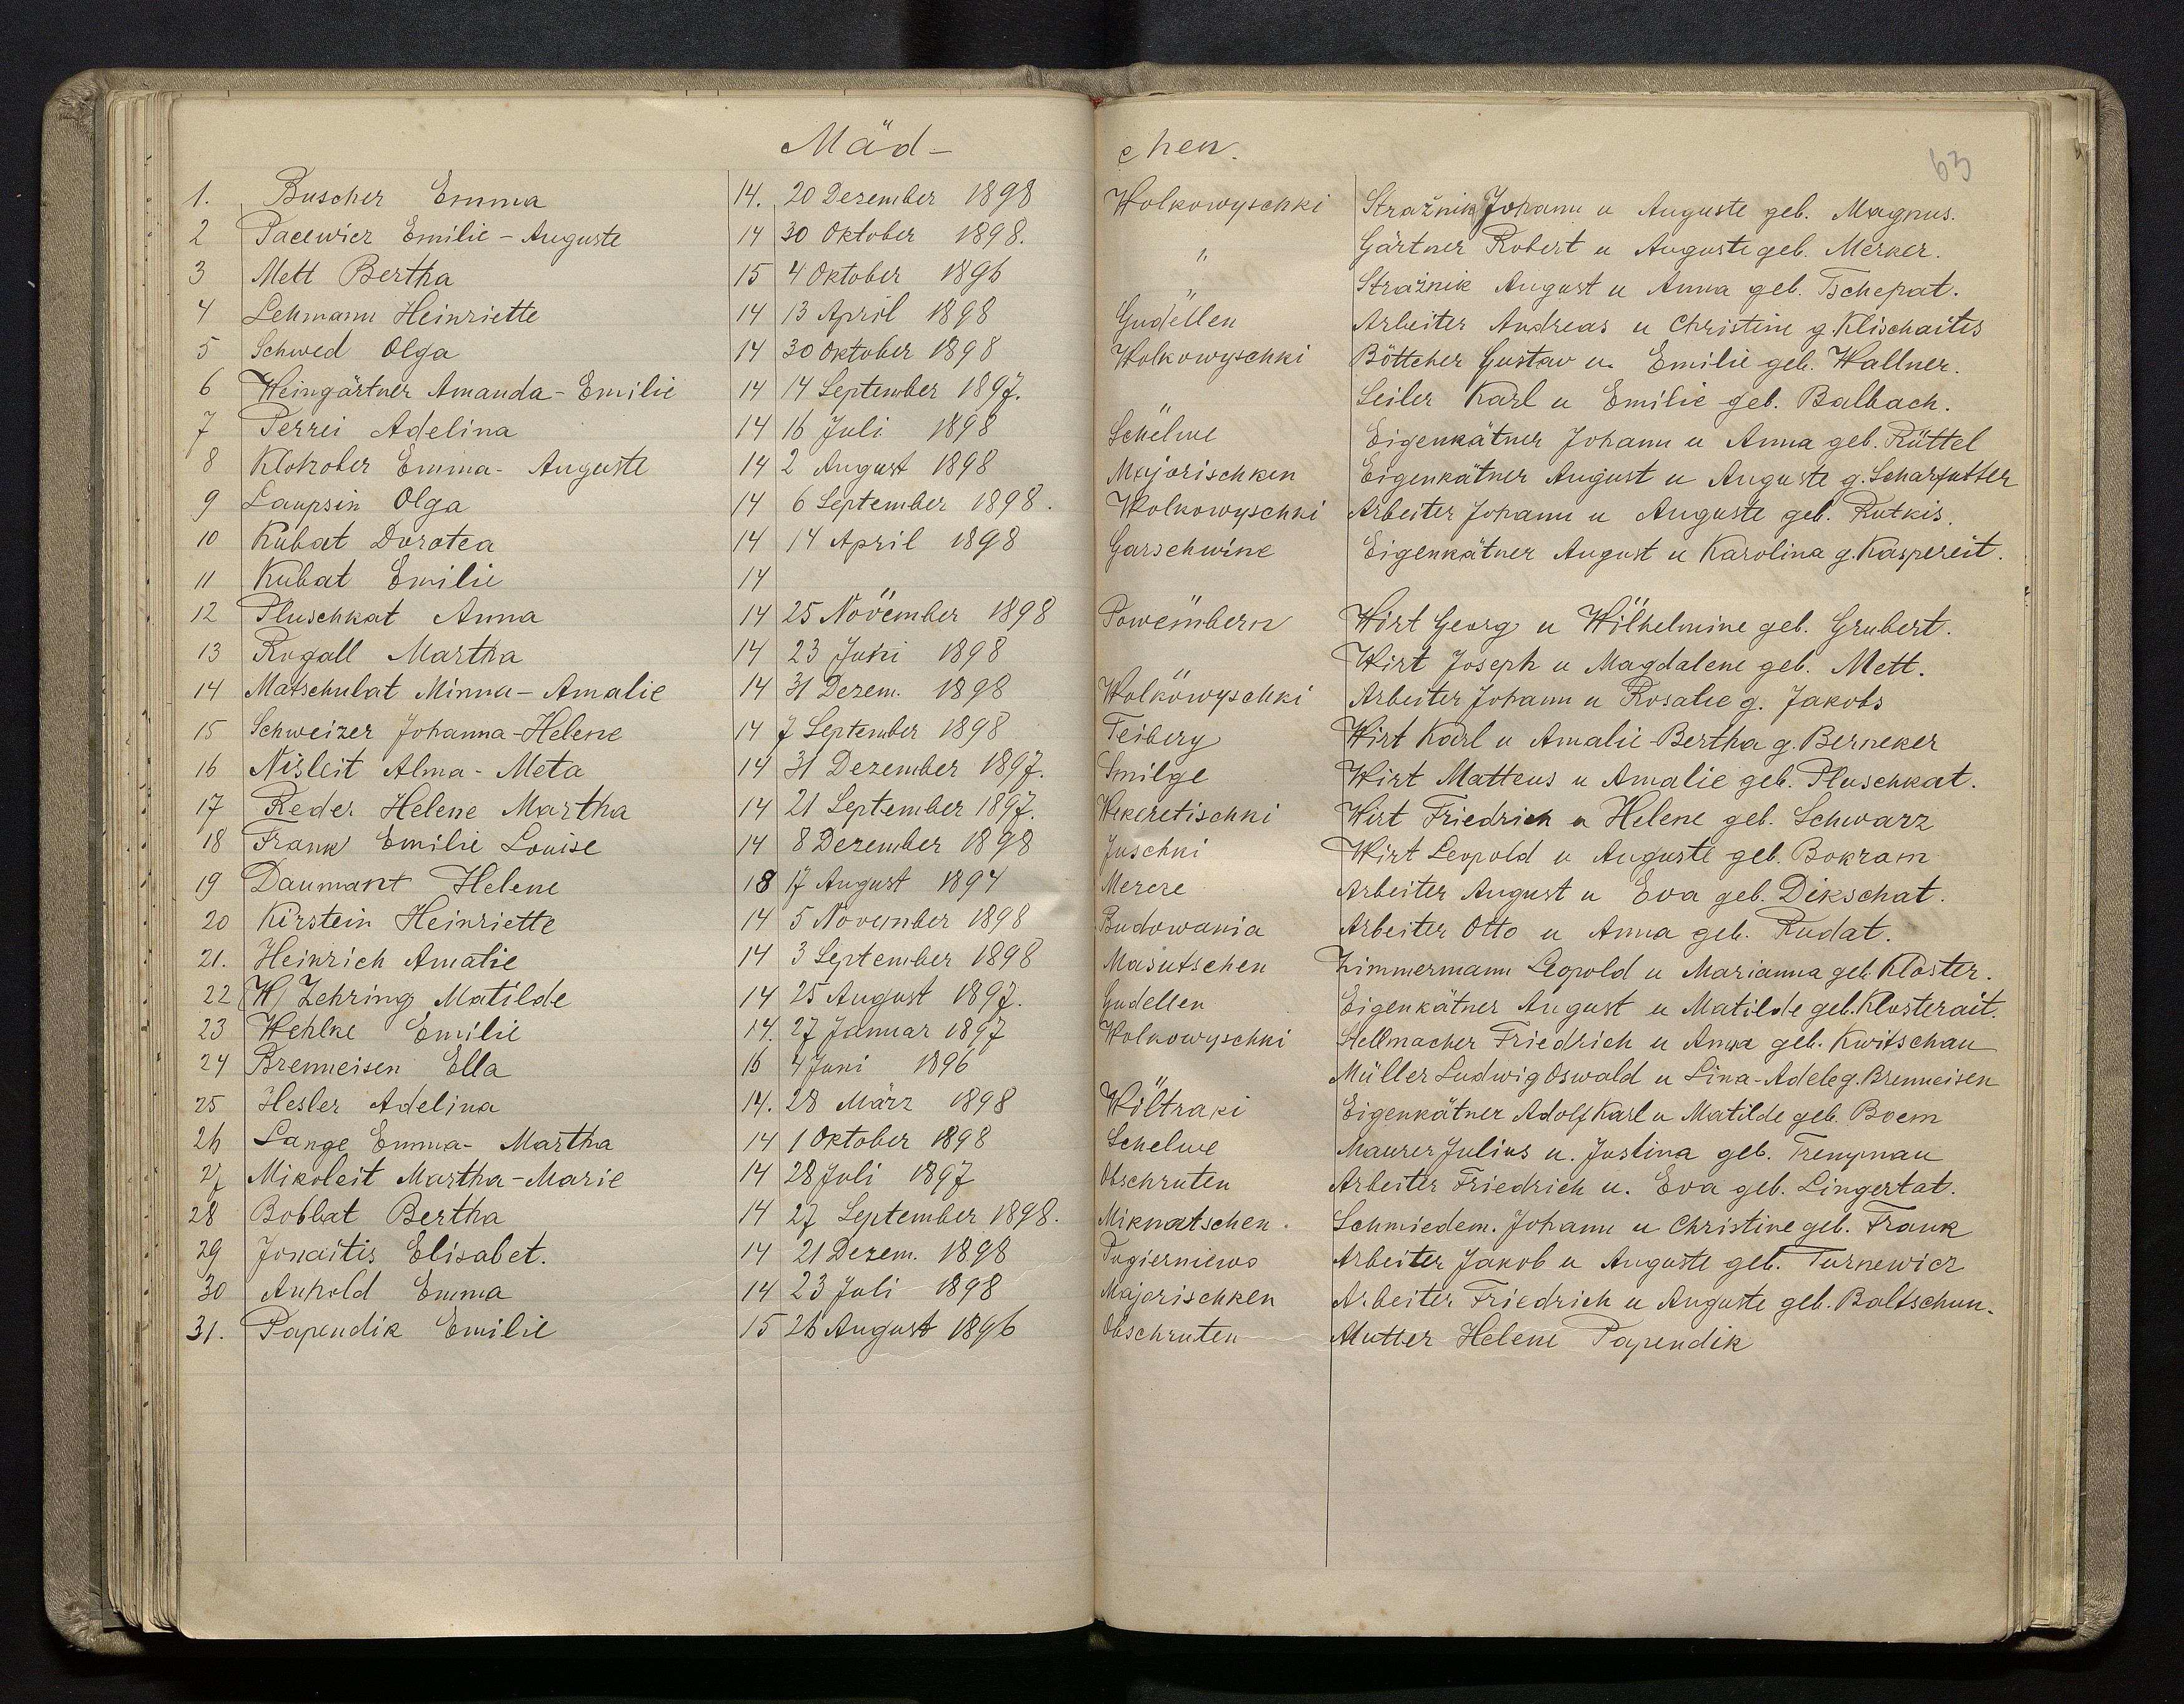 Mäd- chen.
63
1. Buscher Emma 14. 20 Dezember 1898 Wolkowyschki Stražnik Johann u Auguste geb. Magnus.
2 Pacewicz Emilie - Auguste 14 30 Oktober 1898. " Gärtner Robert u Auguste geb. Merker.
3 Mett Bertha 15 4 Oktober 1896 " Stražnik August u Anna geb. Tschepat.
4 Lehmann Heinriette 14 13 April 1898 Gudellen Arbeiter Andreas u Christine g. Klischaites
5 Schwed Olga 14 30 Oktober 1898 Wolkowyschki Böttcher Gustav u. Emilie geb. Wallner.
6 Weingärtner Amanda - Emilie 14 14 September 1897. " Seiler Karl u Emilie geb. Balbach.
7 Perrei Adelina 14 16 Juli 1898 Schelwe Eigenkätner Johann u Anna geb. Rüttel
8 Klokober Emma - Auguste 14 2 August 1898 Majorischken Eigenkätner August u Auguste g. Scharfutter
9 Laupsin Olga 14 6 September 1898. Wolkowyschki Arbeiter Johann u Auguste geb. Rutkis.
10 Kubat Dorotea 14 14 April 1898 Garschwine Eigenkätner August u Karolina g. Kaspereit.
11 Kubat Emilie 14 " "
12 Pluschkat Anna 14 25 November 1898 Powembern Wirt Georg u Wilhelmine geb. Grubert.
13 Rogall Martha 14 23 Juni 1898 " Wirt Joseph u Magdalene geb. Mett.
14 Matschulat Minna - Amalie 14 31 Dezem. 1898 Wolkowyschki Arbeiter Johann u Rosalie g. Jakobs
15 Schweizer Johanna - Helene 14 7 September 1898 Teiberg Wirt Karl u Amalie Bertha g. Berneker
16 Nisleit Alma - Meta 14 31 Dezember 1897. Smilge Wirt Matteus u Amalie geb. Pluschkat.
17 Reder Helene Martha 14 21 September 1897. Wekeretischki Wirt Friedrich u Helene geb. Schwarz
18 Frank Emilie Louise 14 8 Dezember 1898 Juschki Wirt Leopold u Auguste geb. Bokram
19 Daumant Helene 18 17 August 1894 Merere Arbeiter August u Eva geb. Dikschat.
20 Kirstein Heinriette 14 5 November 1898 Budowania Arbeiter Otto u Anna geb. Rudat.
21. Heinrich Amalie 14 3 September 1898 Masutschen Zimmermann Leopold u Marianna geb. Kloster.
22 (W) Zehring Matilde 14 25 August 1897. Gudellen Eigenkätner August u Matilde geb. Klosterait.
23 Wehlke Emilie 14. 27 Januar 1897 Wolkowyschki Stellmacher Friedrich u Anna geb. Kwitschau
24 Brenneisen Ella 15 4 Juni 1896 " Müller Ludwig Oswald u Lina-Adele g. Brenneisen
25 Hesler Adelina 14. 28 März 1898 Wiltraki Eigenkätner Adolf Karl u Matilde geb. Boem
26 Lange Emma - Martha 14 1 Oktober 1898 Schelwe Maurer Julius u. Justina geb. Trempnau
27 Mikoleit Martha - Marie 14 28 Juli 1897 Obschruten Arbeiter Friedrich u. Eva geb. Lingertat.
28 Bobbat Bertha 14 27 September 1898. Miknatschen. Schmiedem. Johann u Christine geb. Frank
29 Jonaitis Elisabet. 14 21 Dezem. 1898 Pogierniewo Arbeiter Jakob u Auguste geb. Turnewicz
30 Anhold Emma 14 23 Juli 1898 Majorischken Arbeiter Friedrich u Auguste geb. Baltschun.
31. Papendik Emilie 15 26 August 1896 Obschruten Mutter Helene Papendik